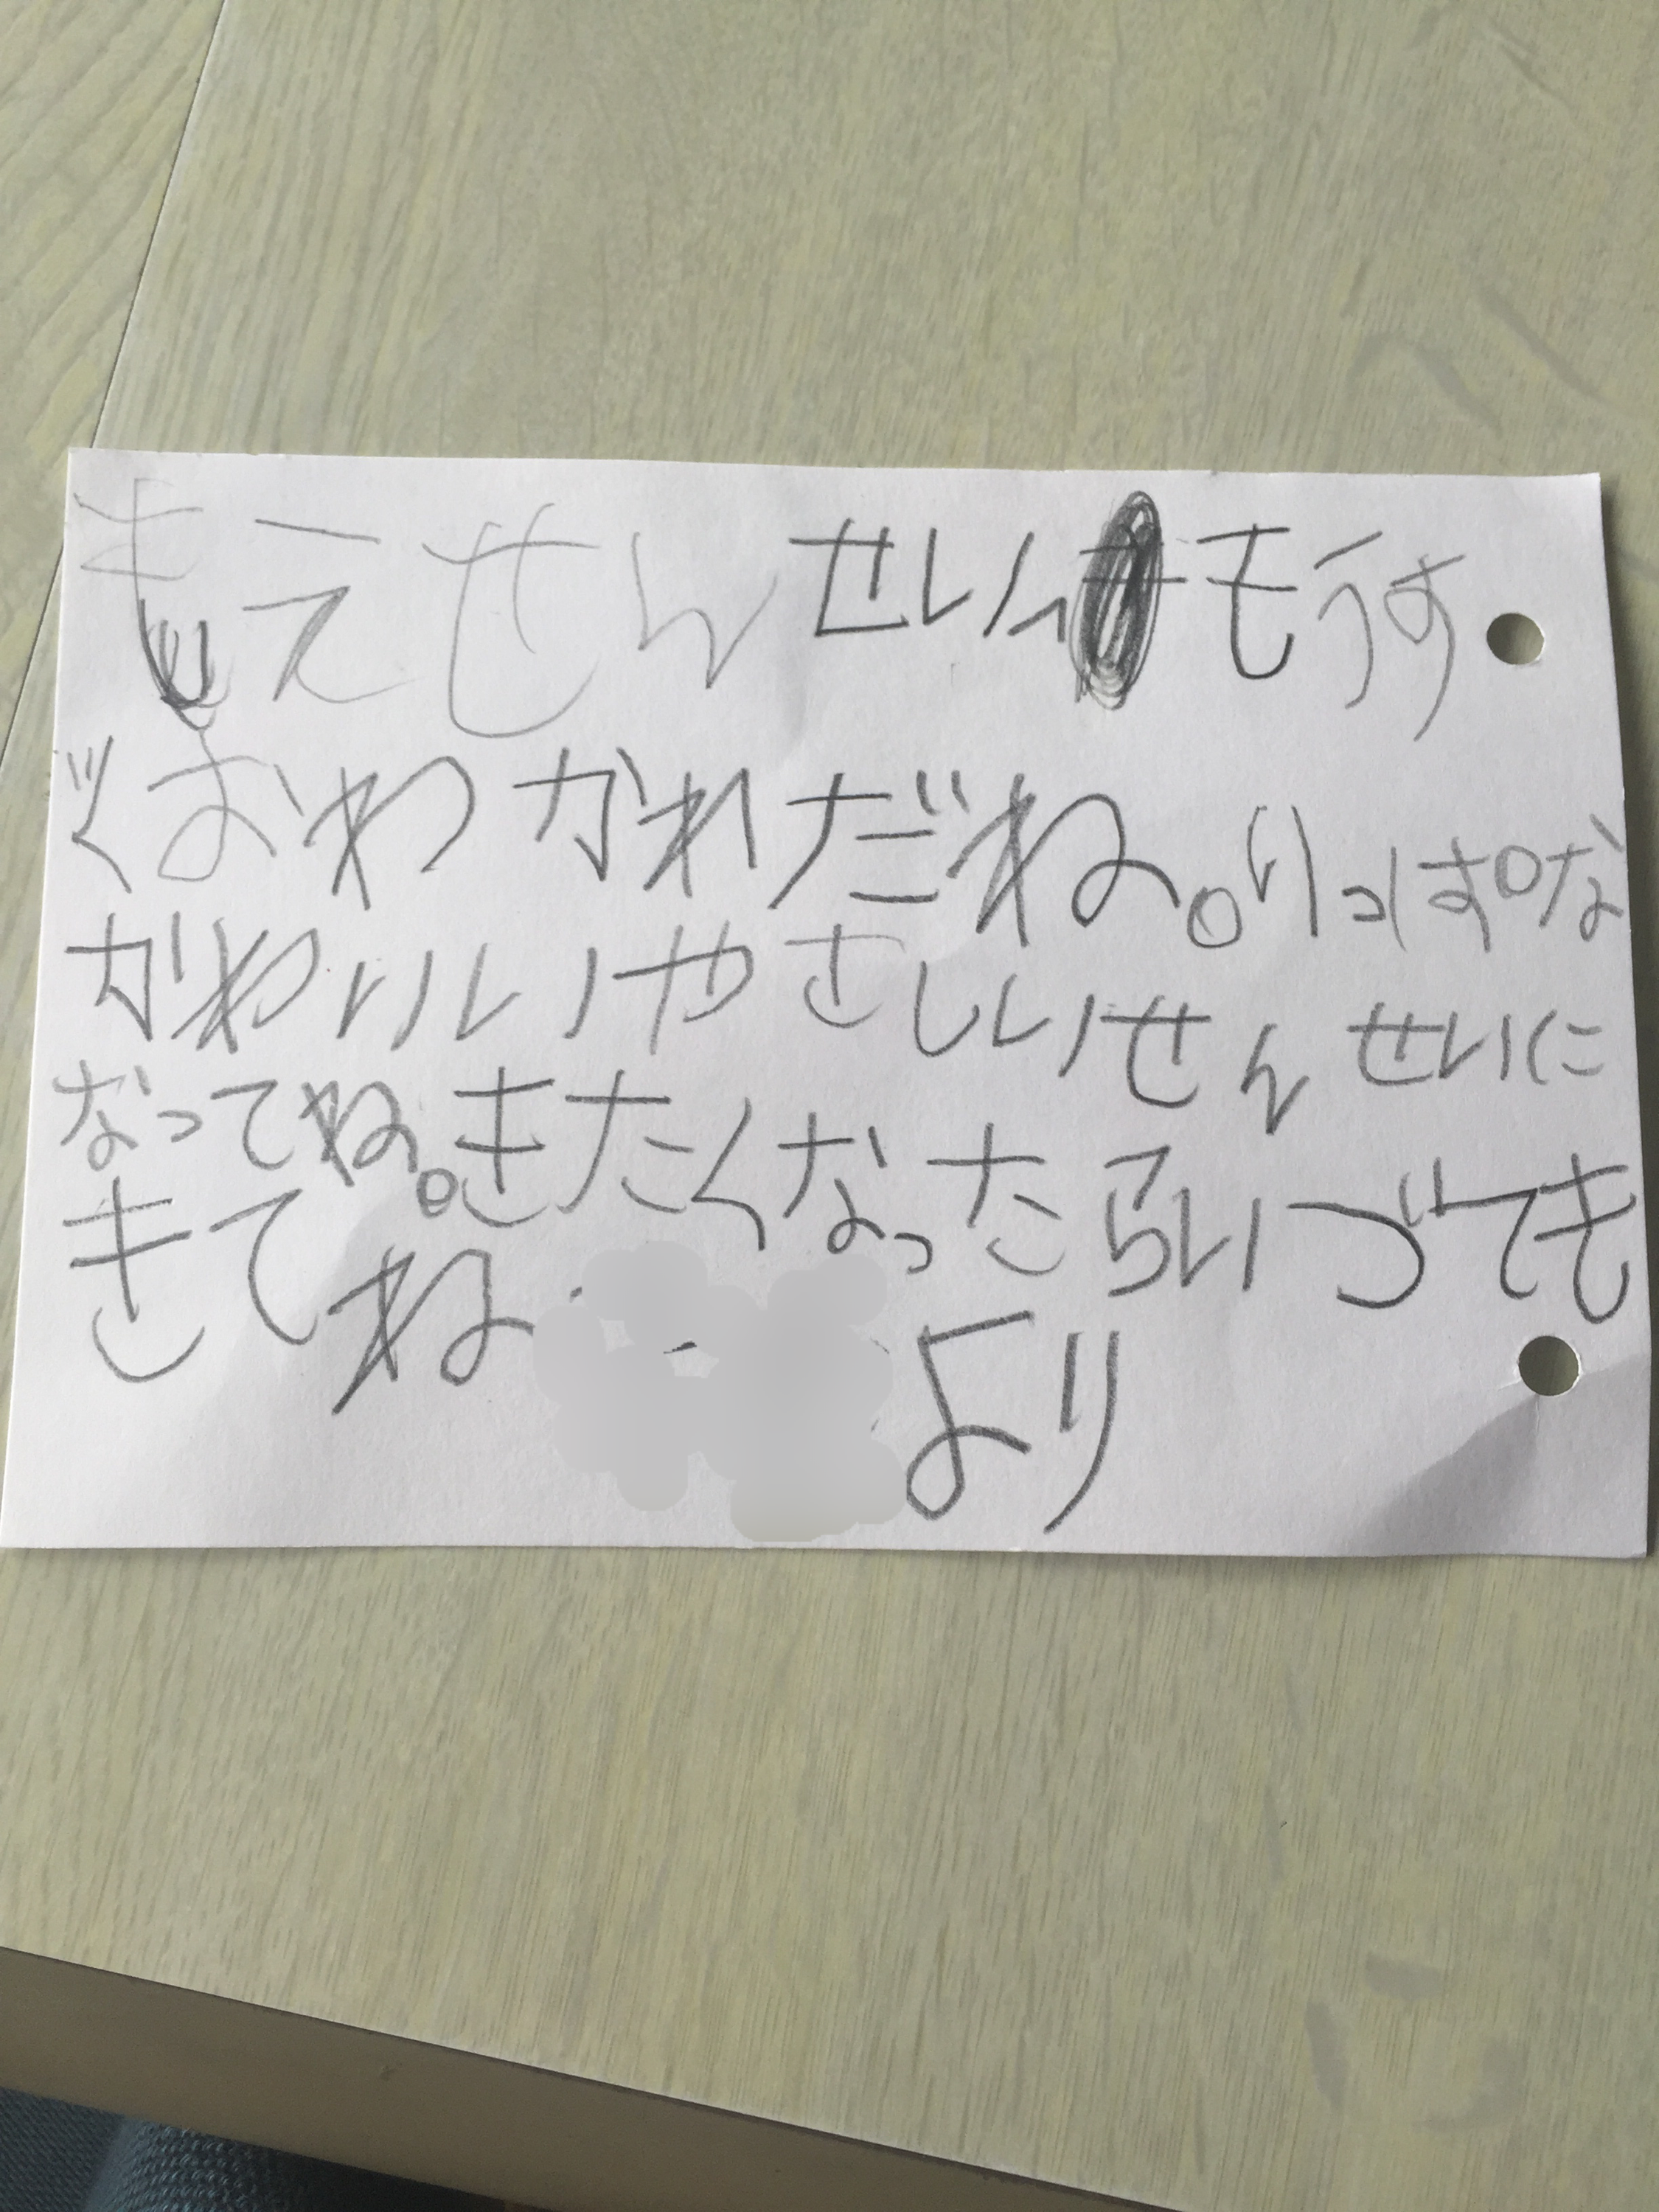 もえせんせいへもうす
ぐおわかれだね。りっぱな
かわいいやさしいせんせいに
なってね。きたくなったらいつでも
きてね
より